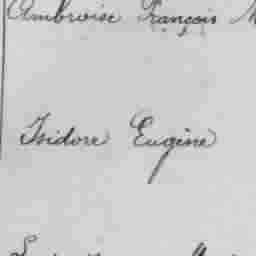 Ambroise François
Isidore Eugène